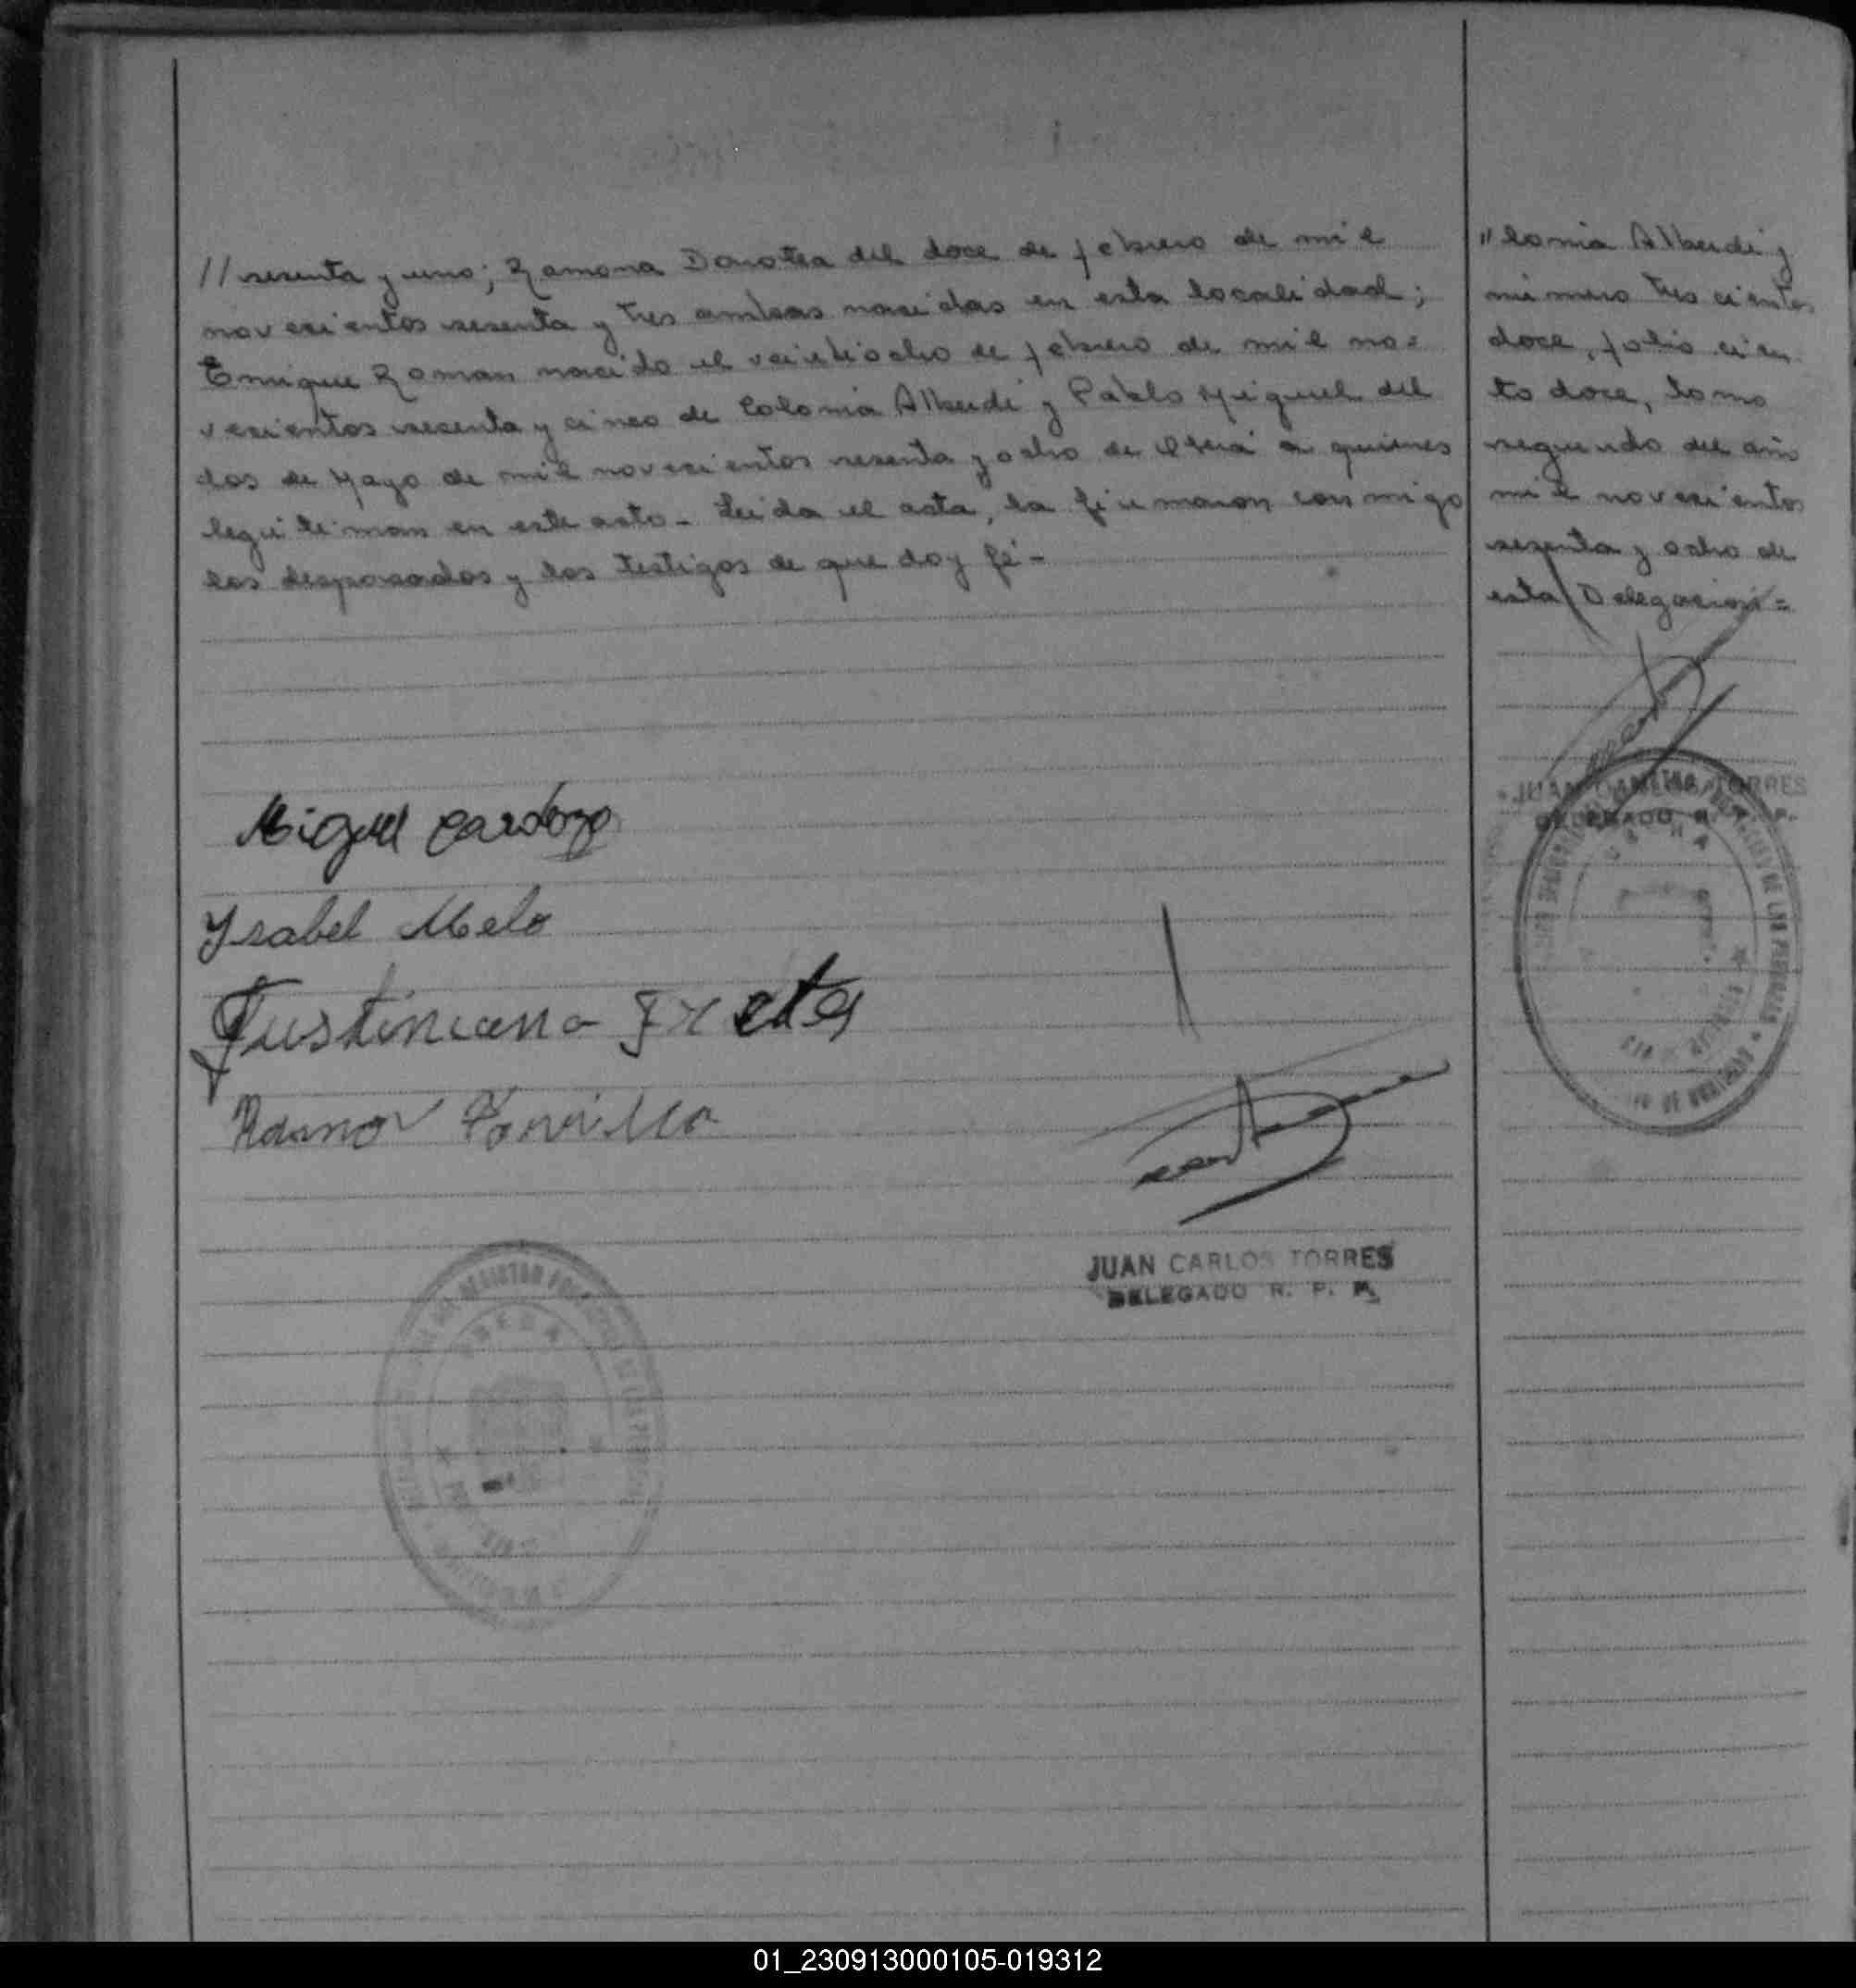 // sesenta y uno; Ramona Dorotea del doce de febrero de mil
novecientos sesenta y tres ambas nacidas en esta localidad;
Enrique Roman nacido el veintiocho de febrero de mil no=
vecientos sesenta y cinco de Colonia Alberdi y Pablo Miguel del
dos de Mayo de mil novecientos sesenta y ocho de Oberá a quienes
legitiman en este acto - Leida el acta, la firmaron conmigo
los desposados y los testigos de que doy fé -
Miguel Cardozo
Ysabel Melo
Justiniano Fretes
Ramon
JUAN CARLOS TORRES
DELEGADO R. P. P.
// lonia Alberdi y
número trescientos
doce, folio cien
to doce, tomo
segundo del año
mil novecientos
sesenta y ocho de
esta Delegacion =
JUAN CARLOS TORRES
DELEGADO R. P. P.
DE LAS PERSONAS
01_230913000105-019312